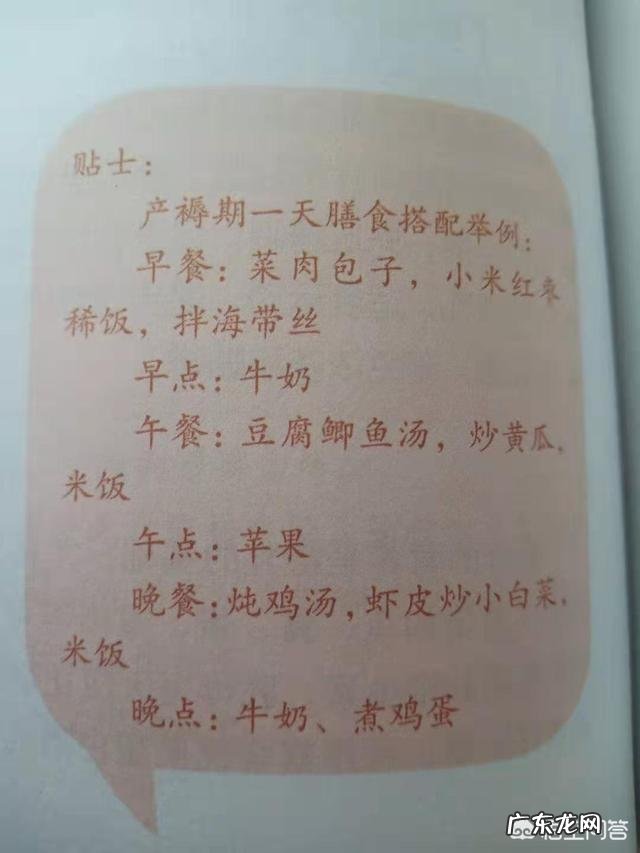 贴士：
产褥期一天膳食搭配举例：
早餐：菜肉包子，小米红枣
稀饭，拌海带丝
早点：牛奶
午餐：豆腐鲫鱼汤，炒黄瓜，
米饭
午点：苹果
晚餐：炖鸡汤，虾皮炒小白菜，
米饭
晚点：牛奶、煮鸡蛋
广东龙网